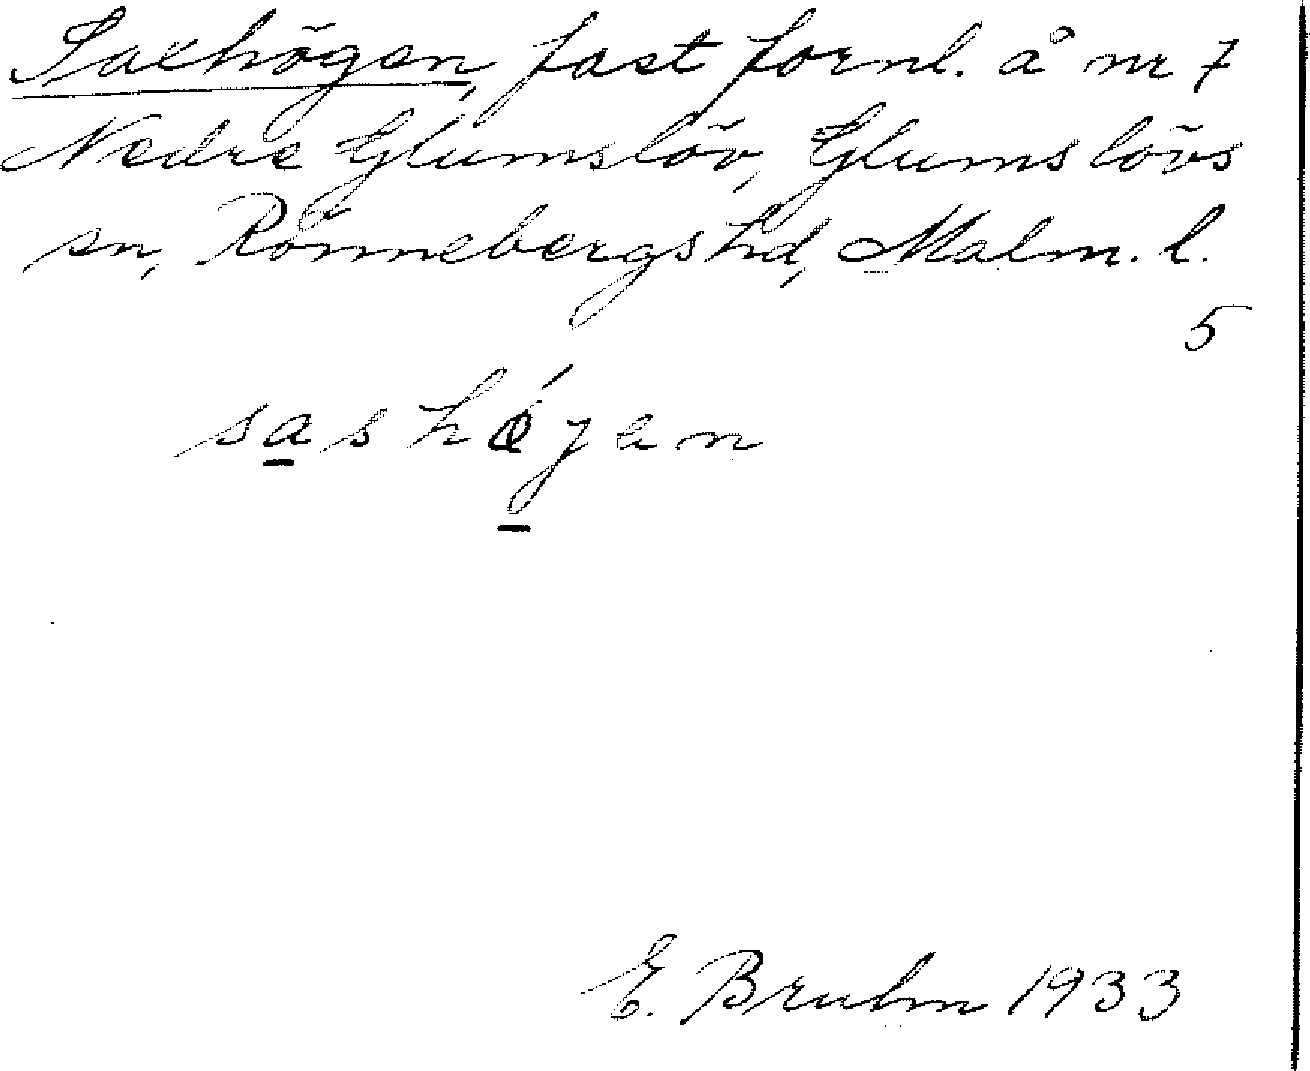 Saxhögen, fast fornl. å nr 7
Nedre Glumslöv, Glumslövs
sn, Rönnebergs hd, Malm. l.
5
sashǿjen
E. Bruhn 1933